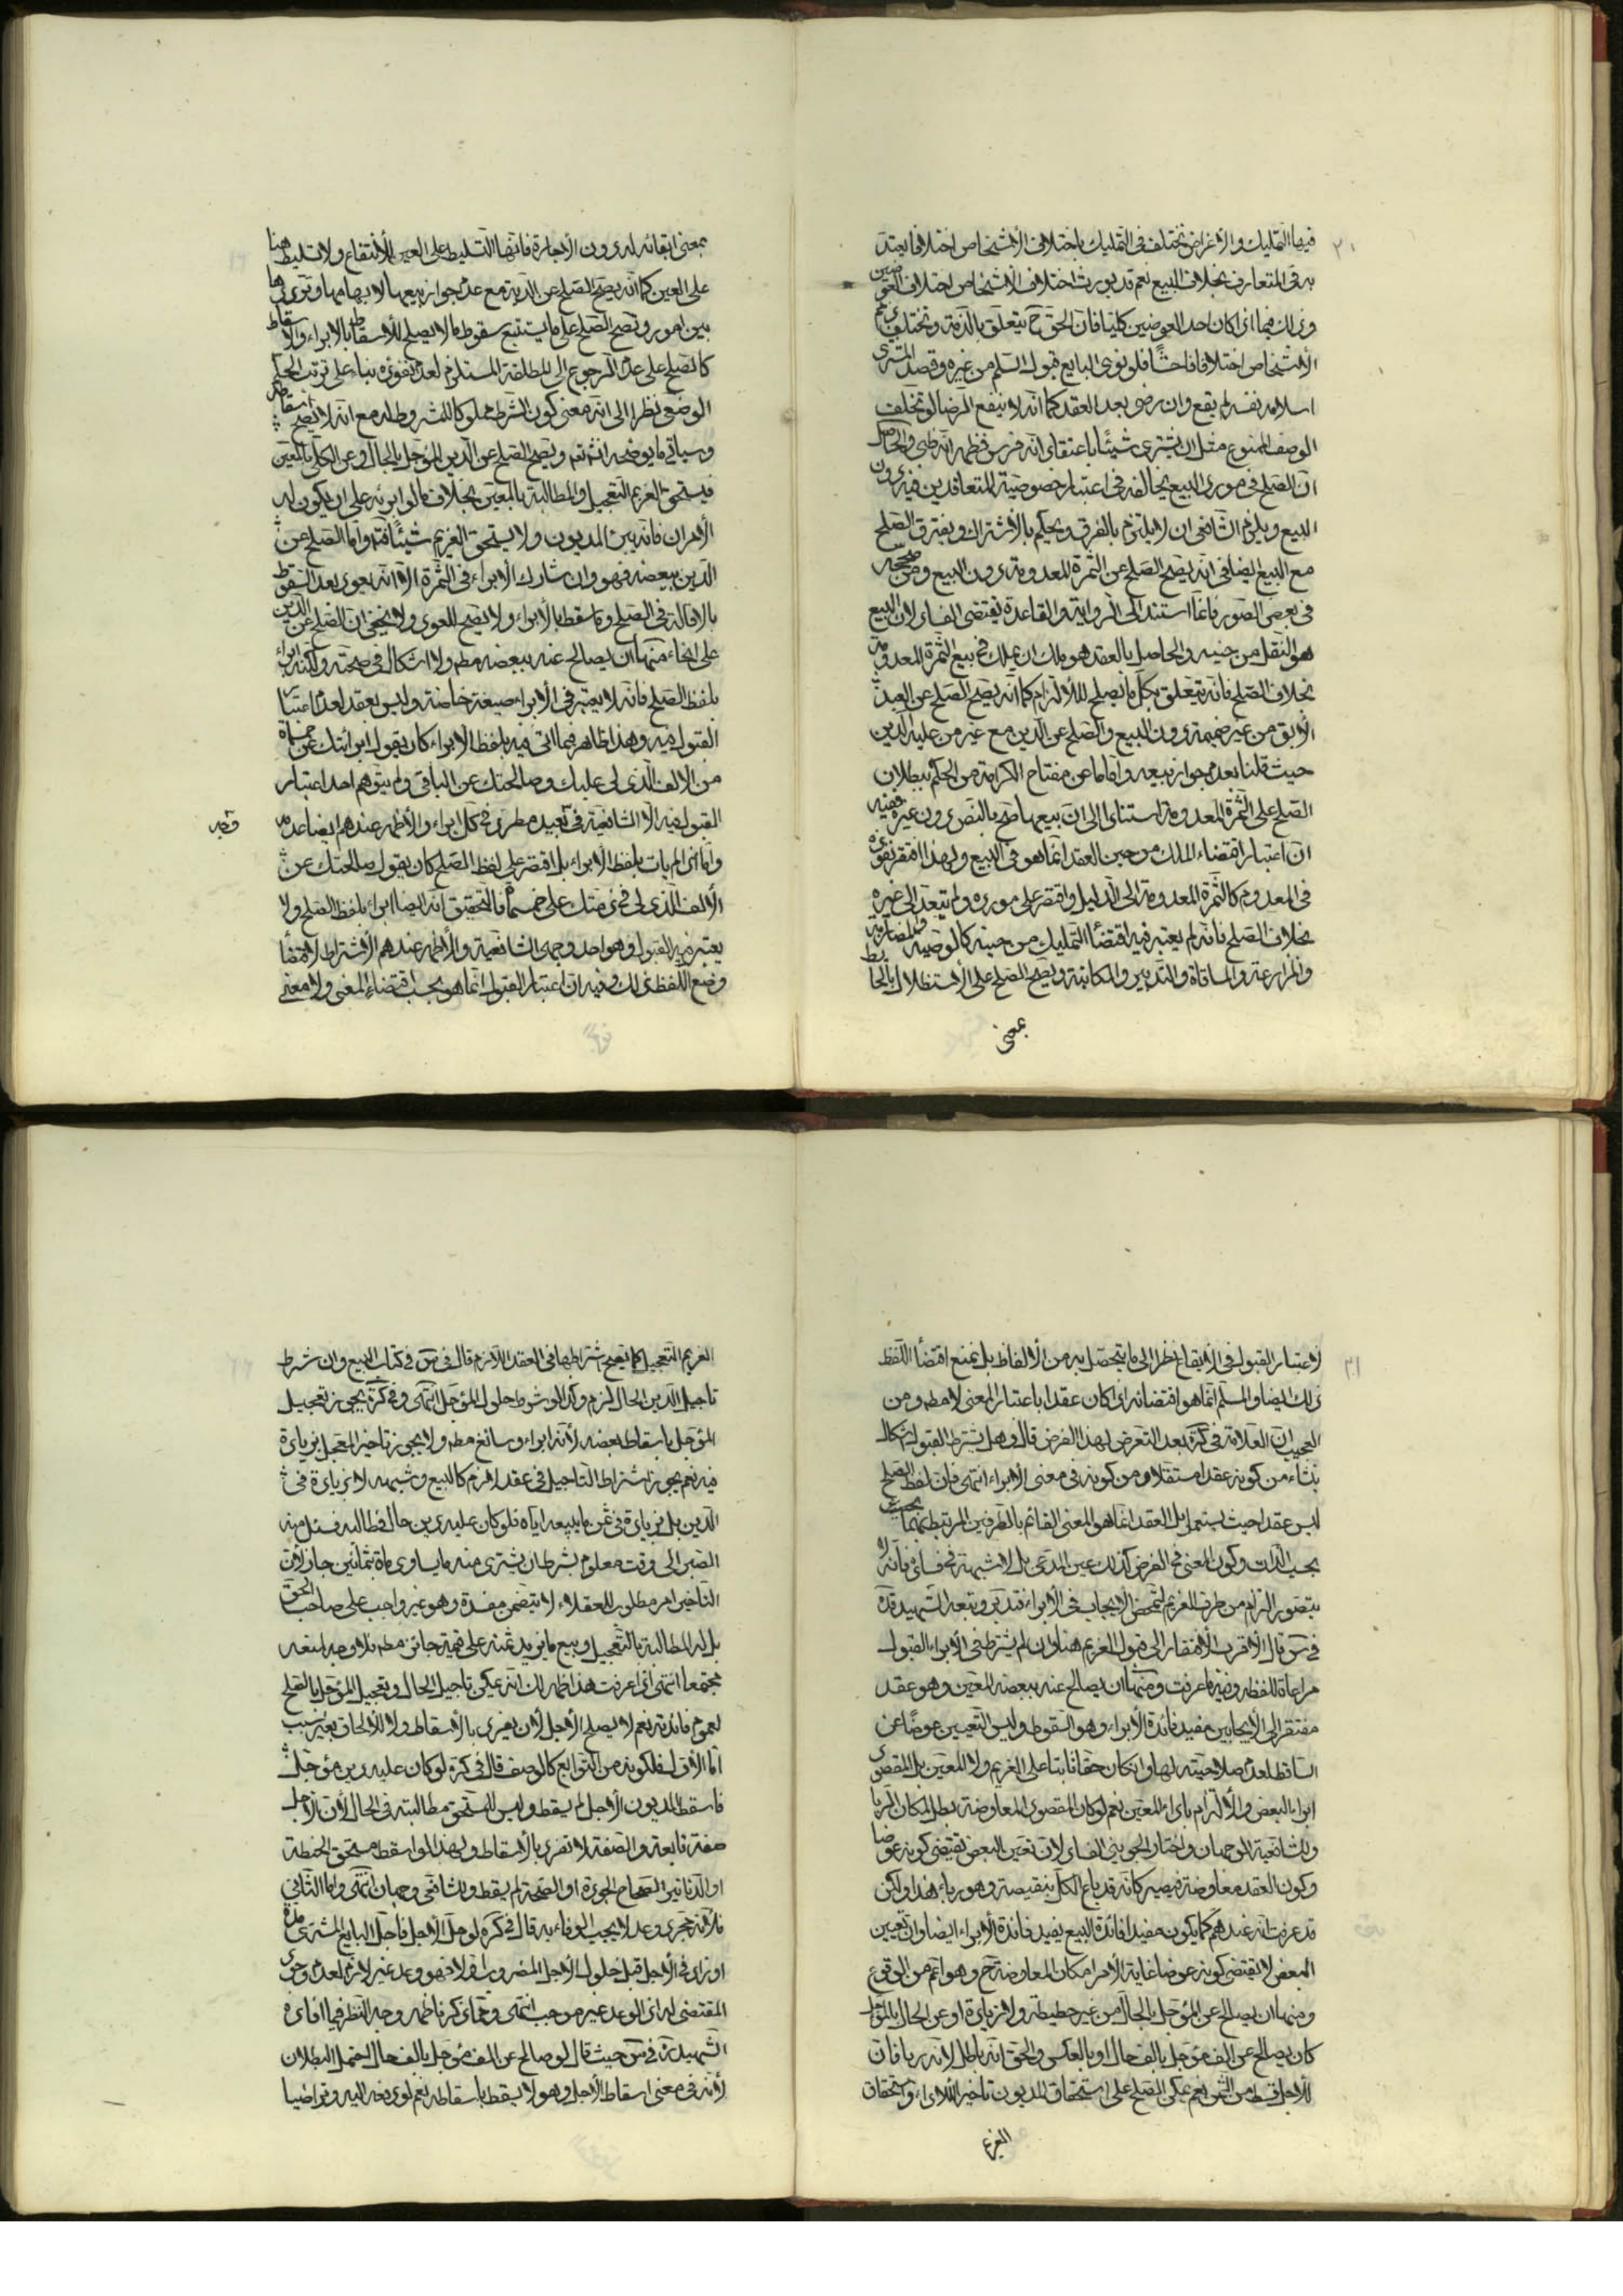 فيها التمليك والأغراض تختلف في التمليك باختلاف الأشخاص اختلافا يعتد
به في المتعارف بخلاف البيع نعم قد يورث اختلاف الأشخاص اختلاف العوضين
وذلك فيما اذا كان احد العوضين كليا فان الحق ح يتعلق بالذمة وتختلف ذمم
الأشخاص اختلافا فاحشًا فلو نوى البايع قبول السلم من غيره وقصد المشترى
اسلامه نفسه لم يقع وان رضى بعد العقد كما انه لا ينفع الرضا لو تخلف
الوصف المنوع مثل ان يشترى شيئًا باعتقاد انه فرس فظهر انه ظبى والحاصل
ان الصلح في مورد البيع يخالفه في اعتبار خصوصية المتعاقدين فيه دون
البيع ويلزم الشافعى ان لا يلتزم بالفرق ويحكم بالاشتراك ويفترق الصلح
مع البيع ايضا في انه يصح الصلح عن الثمرة المعدومة دون البيع ومن صححه
في بعض الصور فانما استند الى الرواية والقاعدة تقتضى الفساد لان البيع
هو النقل من حينه والحاصل بالعقد هو ملك ان يملك في بيع الثمرة المعدومة
بخلاف الصلح فانه يتعلق بكل ما يصلح للالتزام كما انه يصح الصلح عن العبد
الآبق من غير ضميمة دون البيع والصلح عن الدين مع غير من عليه الدين
حيث قلنا بعدم جواز بيعه واما ما عن مفتاح الكرامة من الحكم ببطلان
الصلح على الثمرة المعدومة استنادا الى ان بيعها صح بالنص دون غيره ففيه
ان اعتبار اقتضاء الملك من حين العقد انما هو في البيع ولهذا افتقر نفوذه
في المعدوم كالثمرة المعدومة الى الدليل واقتصر على مورده ولم يتعد الى غيره
بخلاف الصلح فانه لم يعتبر فيه اقتضاء التمليك من حينه كالوصية والمضاربة
والمزارعة والمساقاة والتدبير والمكاتبة ويصح الصلح على الاستظلال بالحائط
بمعنى
بمعنى ابقائه له دون الاجارة فانها التسليط على العين للانتفاع ولا تسليط هنا
على العين كما انه يصح الصلح عن الدية مع عدم جواز بيعها لابهامها وترددها
بين امور ويصح الصلح على ما يستتبع سقوط ما لا يصلح للاسقاط بالابراء والاسقاط
كالصلح على عدم الرجوع الى المطلقة المستلزم لعدم نفوذه بناء على ترتب الحكم
الوضعى نظرا الى انه معنى كون الشرط مملوكا للمشروط له مع انه لا يصح اسقاطه
وسياتى ما يوضحه انشاء تعه ويصح الصلح عن الدين المؤجل بالحال وعن الكلى بالمعين
فيستحق الغريم التعجيل والمطالبة بالمعين بخلاف ما لو ابرئه على ان يكون له
الأمران فانه يبرء المديون ولا يستحق الغريم شيئًا فتم واما الصلح عن
الدين ببعضه فهو وان شارك الابراء في الثمرة الا انه يعود بعد السقوط
بالاقالة في الصلح وما سقط بالابراء ولا يصح للعود ولا يخفى ان الصلح عن الدين
على انحاء منها ان يصالح عنه ببعضه مطه ولا اشكال في صحته ولكنه ابراء
بلفظ الصلح فانه لا يعتبر في الابراء صيغة خاصة وليس بعقد لعدم اعتبار
القبول فيه وهذا ظاهر فيما اتى فيه بلفظ الابراء كان يقول ابرأتك عن خمسمأة
من الالف الذى لى عليك وصالحتك عن الباقى ولم يتوهم احد اعتبار
القبول فيه الا الشافعية في بعيد مطرد في كل ابراء والأظهر عندهم ايضا عدمه
وقيه
واما اذا لم يات بلفظ الابراء بل اقتصر على لفظ الصلح كان يقول صالحتك عن
الألف الذى لى في ذمتك على خمسمأة فالتحقيق انه ايضا ابراء بلفظ الصلح ولا
يعتبر فيه القبول وهو احد وجهى الشافعية والأظهر عندهم الاشتراط لاقتضاء
وضع اللفظ ذلك وفيه ان اعتبار القبول انما هو بحسب اقتضاء المعنى ولا معنى
لاعتبار القبول في الايقاع نظرا الى ما يتحصل به من الالفاظ بل نمنع اقتضاء اللفظ
ذلك ايضا والمسلم انما هو اقتضائه اذا كان عقدا باعتبار المعنى لا مطه ومن
العجيب ان العلامة في كرة بعد التعرض لهذا الفرض قال وهل يشترط القبول اشكال
ينشاء من كونه عقدا مستقلا ومن كونه في معنى الابراء انتهى فان لفظ الصلح
ليس عقدا حيث يستعمل بل العقد انما هو المعنى القائم بالطرفين المرتبط بهما بحيث
يجب الذات وكون المعنى في الفرض كذلك عين المدعى بل لا شبهة في فساده فانه لا
يتصور التزام من طرف الغريم لتمحض الايجاب في الابراء فتدبر وتبعه الشهيد قده
في س قال الأقرب الافتقار الى قبول الغريم هنا وان لم يشترط في الابراء القبول
مراعاة للفظ وفيه ما عرفت ومنها ان يصالح عنه ببعضه المعين وهو عقد
مفتقر الى الايجابين مفيد فائدة الابراء وهو السقوط وليس التعيين عوضًا عن
الساقط لعدم صلاحيته لها وان كان حقا ثابتا على الغريم ولا المعين بل المقصود
ابراء البعض والالتزام باداء المعين نعم لو كان المقصود المعاوضة بطل لمكان الربا
وللشافعية الوجهان واختار الجوينى الفساد لان تعين البعض تقتضى كونه عوضا
وكون العقد معاوضة فيصير كانه قد باع الكل بنقيصة وهو رباء هذا ولكن
قد عرفت انه عندهم كما يكون مفيدا فائدة البيع يفيد فائدة الابراء ايضا وان تعيين
البعض لا يقتضى كونه عوضا غاية الأمر امكان المعاوضة ح وهو اعم من الوقوع
ومنها ان يصالح عن المؤجل بالحال من غير حطيطة ولا زيادة او عن الحال بالمؤجل
كان يصالح عن الف مؤجل بالف حال او بالعكس والحق انه باطل لانه ربا فان
للأجل قسطا من الثمن نعم يمكن الصلح على استحقاق المديون تاخير الاداء واستحقاق
الغريم
الغريم التعجيل كما يصح اشتراطهما في العقد اللازم قال في س في كتاب البيع وان شرط
تاجيل الدين الحال لزم وكذا لو شرط حلول المؤجل انتهى وفي كرة يجوز تعجيل
المؤجل باسقاط بعضه لأنه ابراء وسائغ مطه ولا يجوز تاخير المعجل بزيادة
فيه نعم يجوز اشتراط التاجيل في عقد لازم كالبيع وشبهه لا بزيادة في
الدين بل بزيادة في ثمن ما يبيعه اياه فلو كان عليه دين حال فطالبه فسئل منه
الصبر الى وقت معلوم بشرط ان يشترى منه ما يساوى ماة بثمانين جاز لان
التأخير امر مطلوب للعقلاء لا يتضمن مفسدة وهو غير واجب على صاحب الحق
بل له المطالبة بالتعجيل وبيع ما يزيد ثمنه على قيمة جائز مطه فلا وجه لمنعه
مجتمعا انتهى اذا عرفت هذا ظهر لك انه يمكن تاجيل الحال وتعجيل المؤجل بالصلح
لعموم فائدته نعم لا يصلح الأجل لان يفرد بالاسقاط ولا للالحاق بغير سبب
اما الأول فلكونه من التوابع كالوصف قال في كرة لو كان عليه دين مؤجل
فاسقط المديون الأجل لم يسقط وليس للمستحق مطالبته في الحال لأن الأجل
صفة تابعة والصفة لا تفرد بالاسقاط ولهذا لو اسقط مستحق الحنطة
او الدنانير الصحاح الجودة او الصحة لم يسقط وللشافعى وجهان انتهى واما الثانى
فلانه مجرد وعد لا يجب الوفاء به قال في كره لو حل الأجل فاجل البايع المشترى مدة
او زاد في الأجل قبل حلول الأجل المضروب اولا فهو وعد غير لازم لعدم وجود
المقتضى له اذ الوعد غير موجب انتهى وبما ذكر ظهر وجه النظر فيما افاده
الشهيد ره في س حيث قال لو صالح عن الف مؤجل بالف حال احتمل البطلان
لأنه في معنى اسقاط الأجل وهو لا يسقط باسقاطه نعم لو دفعه اليه وتراضيا